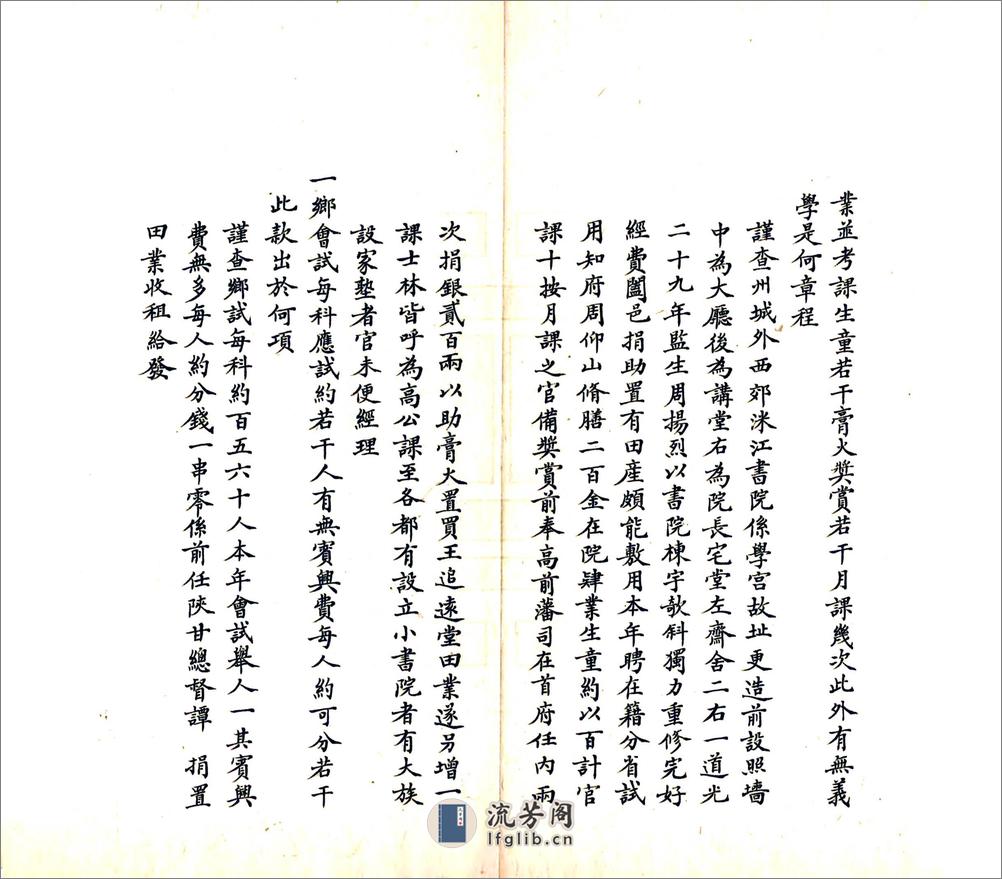 業並考課生童若干膏火獎賞若干月課幾次此外有無義
學是何章程
謹查州城外西郊洣江書院係學宮故址更造前設照墻
中為大廳後為講堂右為院長宅堂左齋舍二右一道光
二十九年監生周揚烈以書院棟宇欹斜獨力重修完好
經費闔邑捐助置有田產頗能敷用本年聘在籍分省試
用知府周仰山脩膳二百金在院肄業生童約以百計官
課十按月課之官備獎賞前奉高前藩司在首府任內兩
次捐銀貳百兩以助膏火置買王追遠堂田業遂另增一
課士林皆呼為高公課至各都有設立小書院者有大族
設家塾者官未便經理
一鄉會試每科應試約若干人有無賓興費每人約可分若干
此款出於何項
謹查鄉試每科約百五六十人本年會試舉人一其賓興
費無多每人約分錢一串零係前任陝甘總督譚 捐置
田業收租給發
流芳阁
lfglib.cn